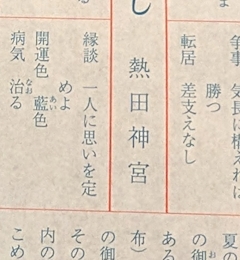 争事 気長に構えれば
勝つ
転居 差支えなし
し 熱田神宮
縁談 一人に思いを定
めよ
開運色 藍色
あい
病気 治る
なお
夏の
の御
お
ある
布）
の御
その
内の
こめ